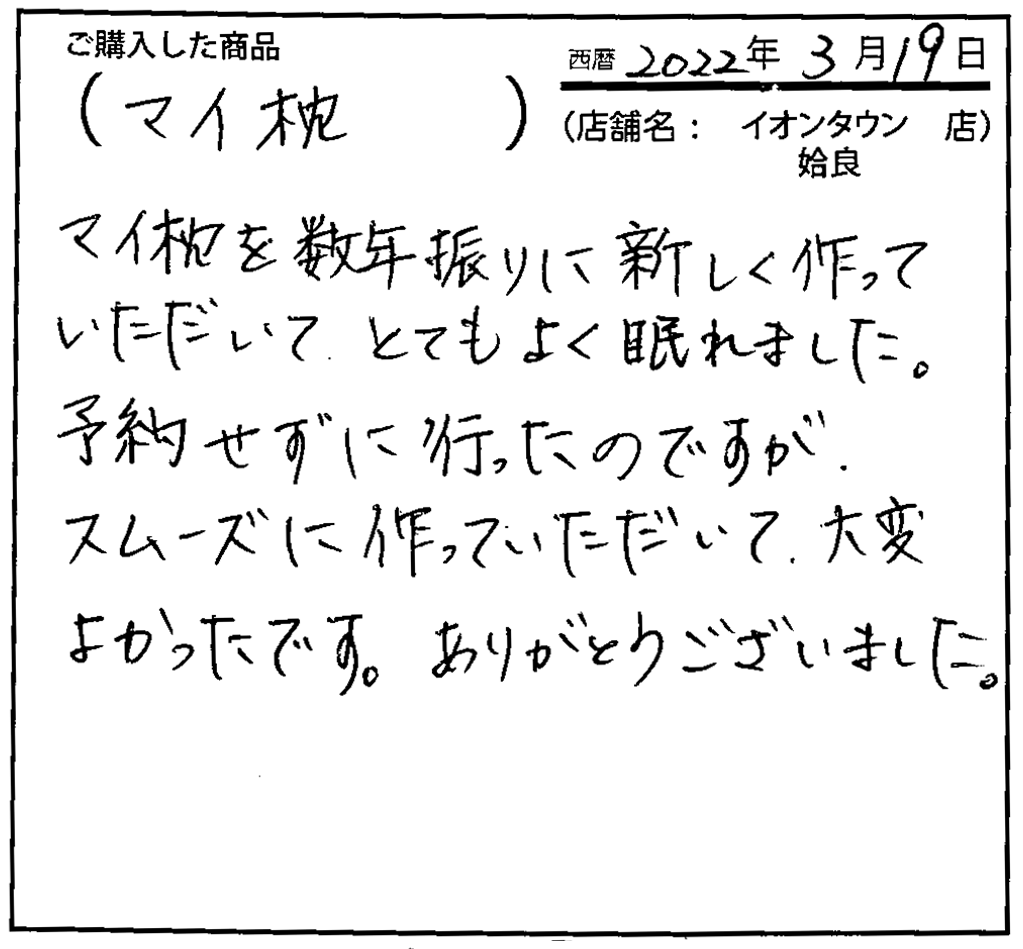 ご購入した商品
西暦 2022年 3月19日
(マイ枕)
(店舗名: イオンタウン 店)
姶良
マイ枕を数年振りに新しく作って
いただいて、とてもよく眠れました。
予約せずに行ったのですが、
スムーズに作っていただいて、大変
よかったです。ありがとうございました。